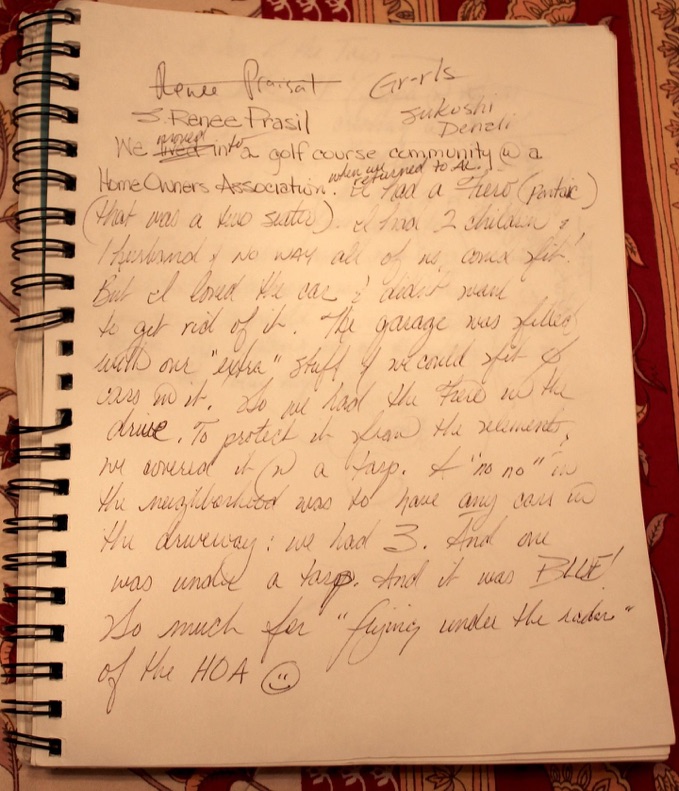 Renee Praisat Gr-rls
S. Renee Prasil Sukoshi
Denali
moved
We lived into a golf course community @ a
when we
returned to AL.
Home Owners Association. I had a Fiero (Pontiac)
(that was a two seater). I had 2 children &
1 husband & no way all of us could fit!
But I loved the car & didn't want
to get rid of it. The garage was filled
with our "extra" stuff & we could fit
cars in it. So we had the Fiero in the
drive. To protect it from the elements,
we covered it w a tarp. A "no no" in
the neighborhood was to have any cars in
the driveway: we had 3. And one
was under a tarp. And it was BLUE!
So much for "flying under the radar"
of the HOA